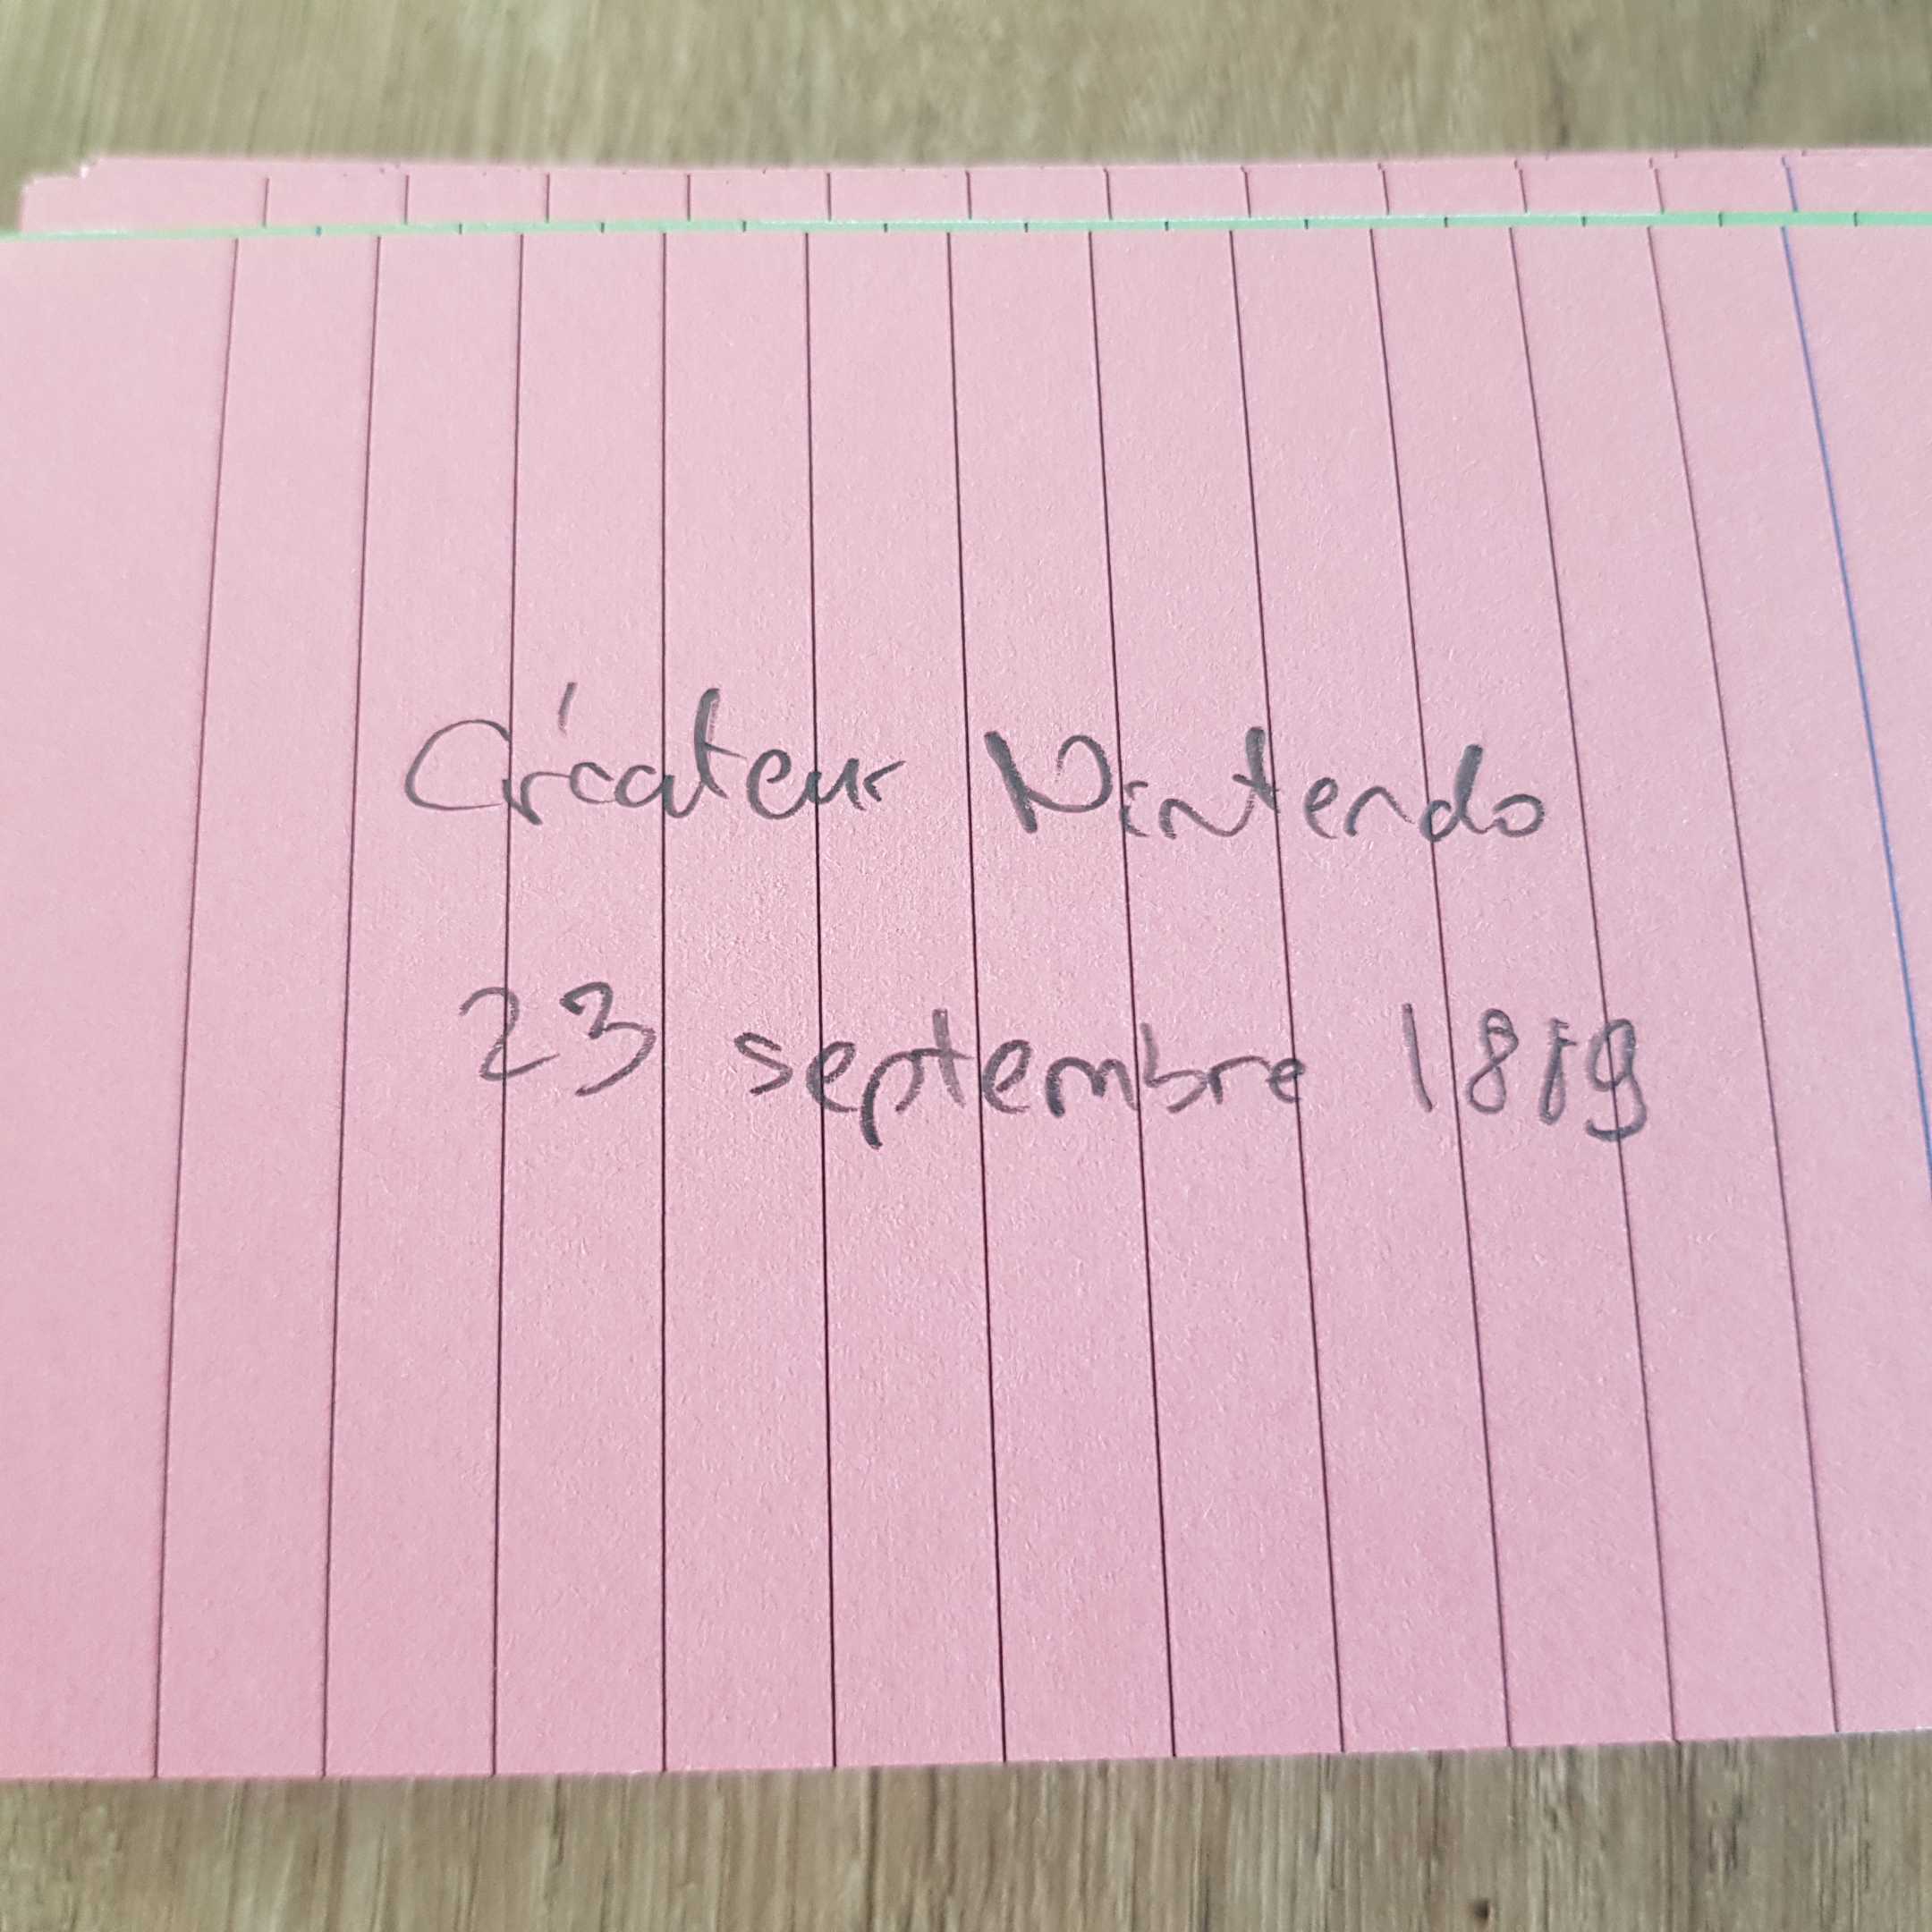 Créateur Nintendo
23 septembre 1889